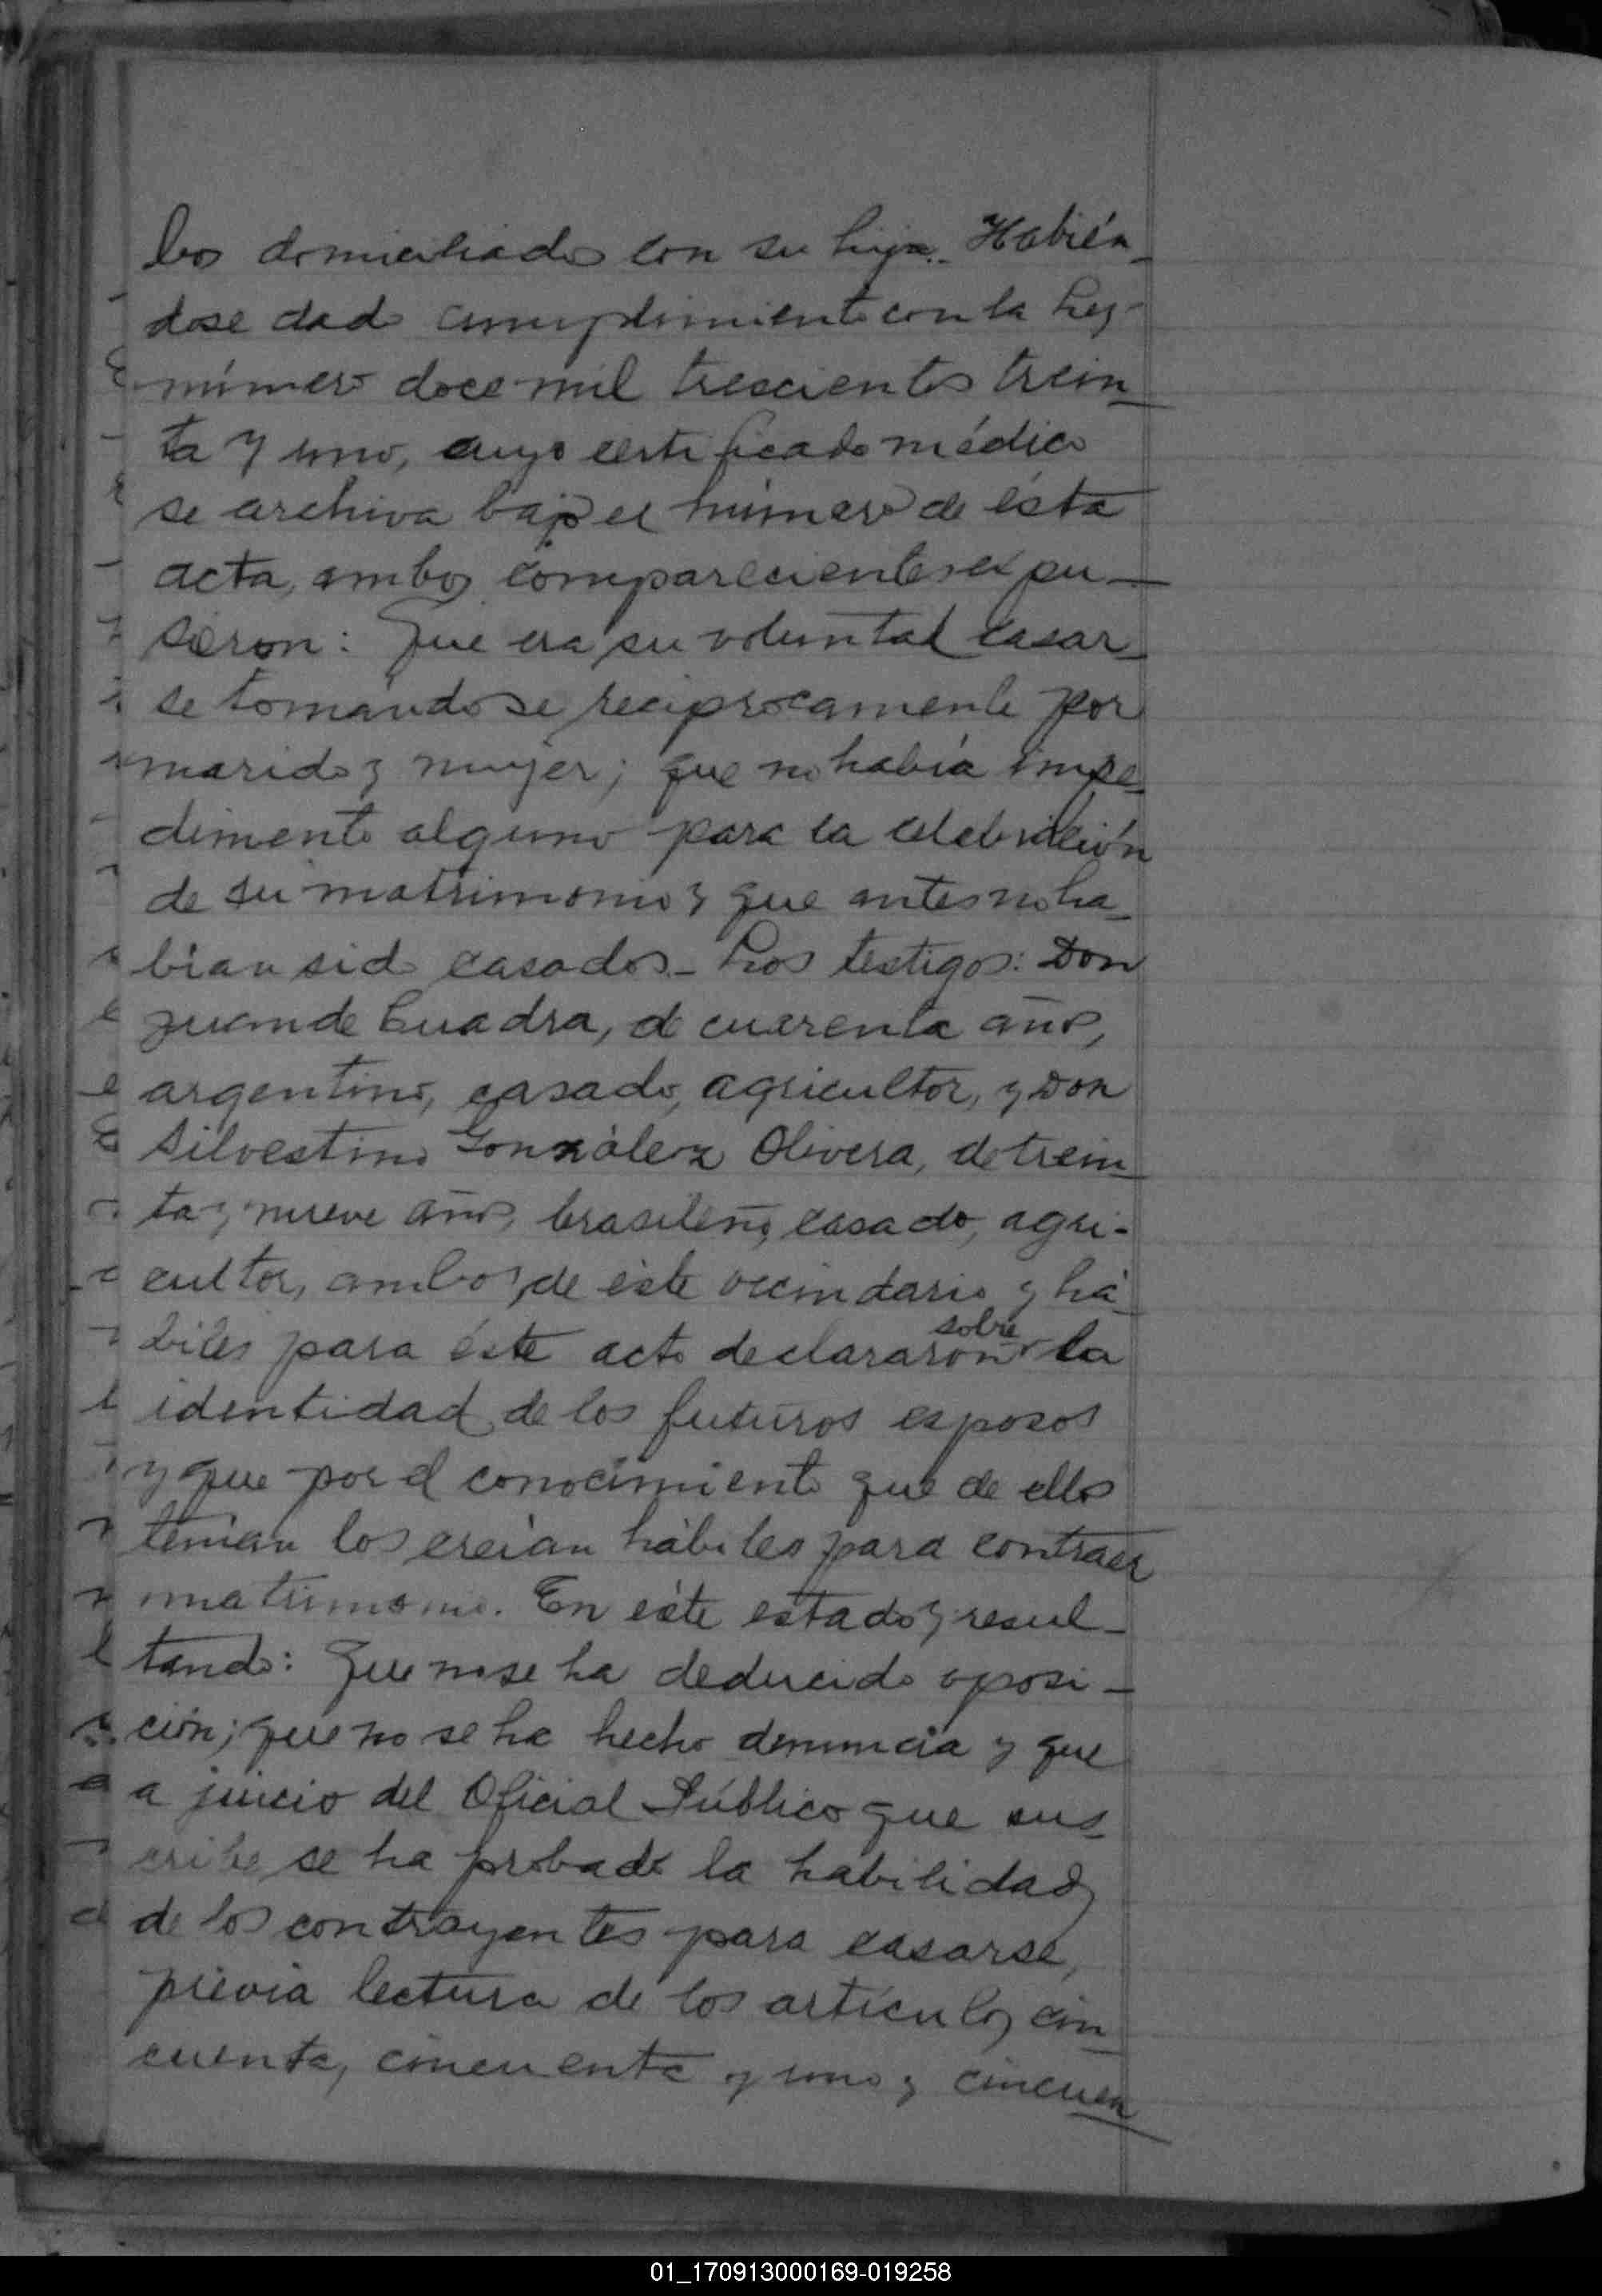 bos domiciliados con su hija. Habién-
dose dado cumplimiento con la Ley
número doce mil trescientos trein-
ta y uno, cuyo certificado médico
se archiva bajo el número de ésta
acta, ambos comparecientes expu-
sieron: Que era su voluntad casar-
se tomandose reciprocamente por
marido y mujer; que no había impe-
dimento alguno para la celebración
de su matrimonio y que antes no ha-
bían sido casados.- Los testigos: Don
Juan de Cuadra, de cuarenta años,
argentino, casado, agricultor, y Don
Silvestino González Olivera, de trein-
ta y nueve años, brasileño, casado, agri-
cultor, ambos de éste vecindario y há-
biles para éste acto declararon sobre la
identidad de los futuros esposos
y que por el conocimiento que de ellos
tenían los creían hábiles para contraer
matrimonio. En éste estado y resul-
tando: Que no se ha deducido oposi-
ción; que no se ha hecho denuncia y que
a juicio del Oficial Público que sus-
cribe se ha probado la habilidad
de los contrayentes para casarse,
previa lectura de los artículos cin-
cuenta, cincuenta y uno y cincuen
01_170913000169-019258